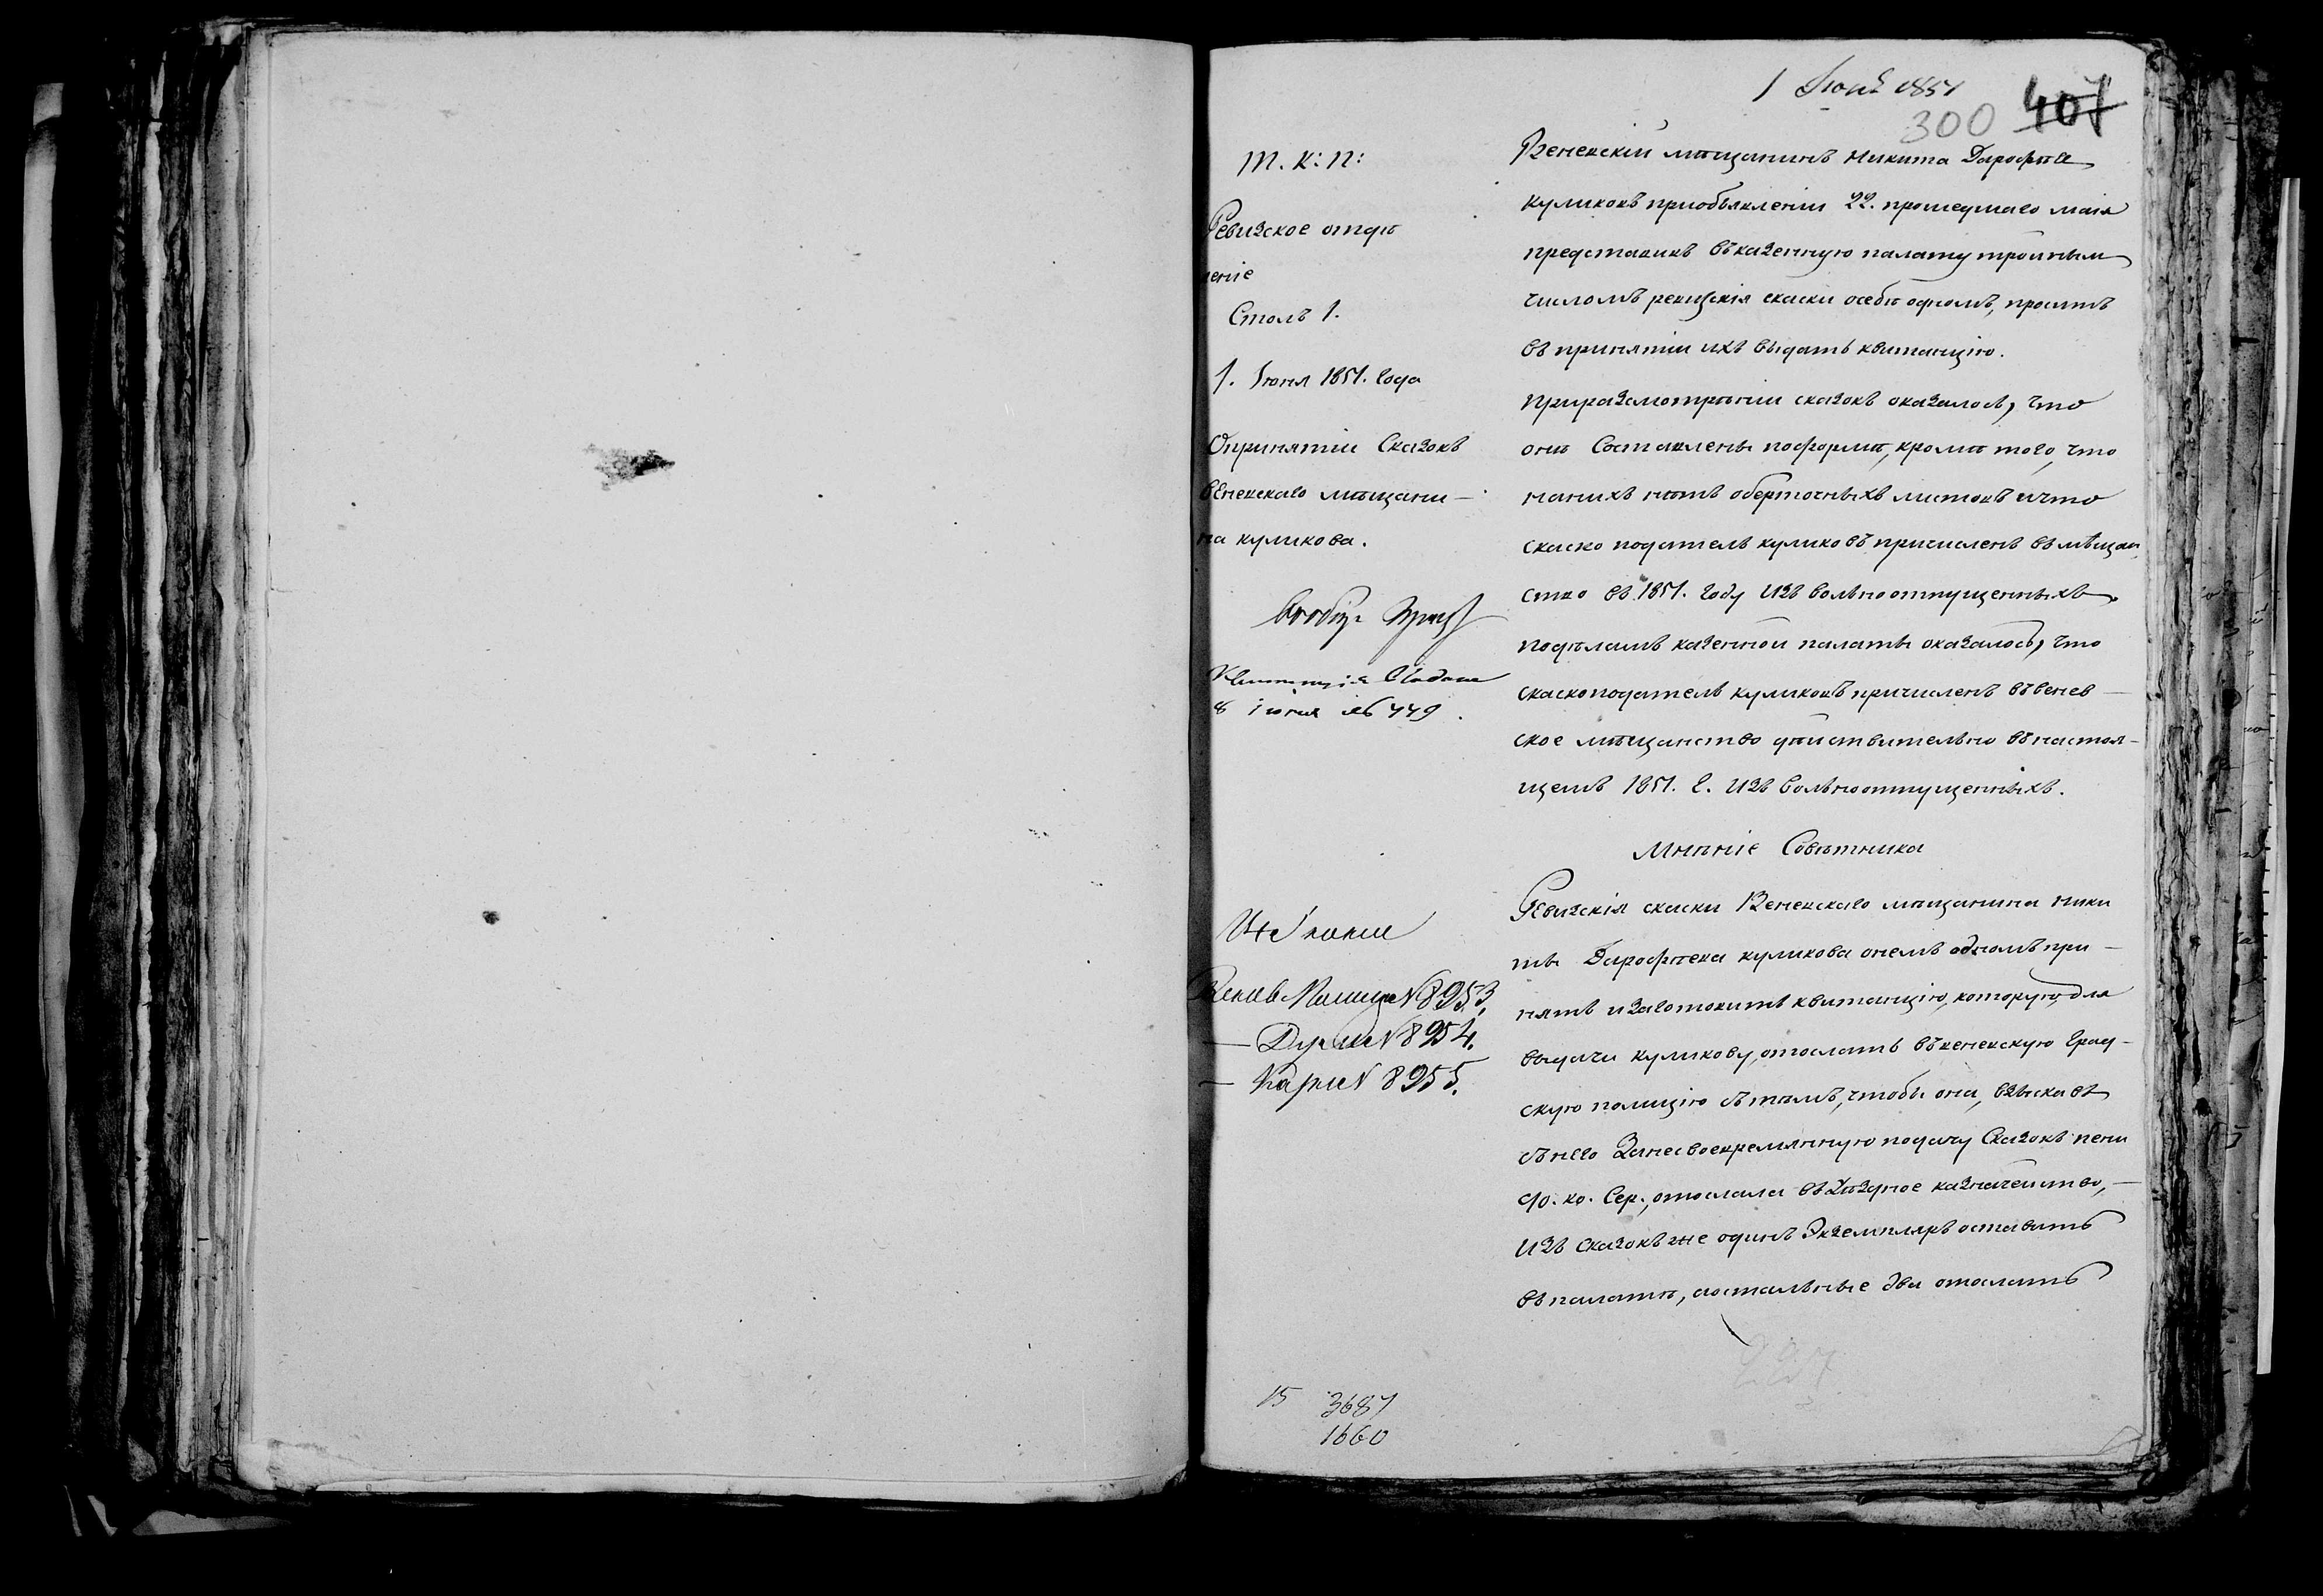 1 Іюнѣ 1851
300 407
Т. К: П:
Ревизское отдѣ
леніе
Столъ 1.
1. Іюня 1851. года
О принятіи Сказокъ
Веневскаго мѣщани-
на Куликова.
Квитанція
8 іюня № 449.
Исполне
Венев Полиціи № 8953.
— Думѣ № 8954.
— Казнѣ № 8955.
15 3687
1660
Веневскій мѣщанинъ Никита Дарофѣе
Куликовъ при объявленіи 22. прошедшаго маія
представивъ въ казенную палату тройным
числомъ ревизскія скаски о себѣ одномъ, проситъ
въ принятіи ихъ выдать квитанцію.
При разсмотрѣніи сказокъ оказалось, что
онѣ Составлены по формѣ, кромѣ того, что
на нихъ нѣтъ оберточныхъ листовъ и что
скаско податель Куликовъ причисленъ въ мѣщан
ство въ 1851. году изъ вольноотпущенныхъ.
По дѣламъ казенной палаты оказалось, что
скаскоподатель Куликовъ причисленъ въ венев-
ское мѣщанство дѣйствительно въ настоя-
щемъ 1851. г. изъ вольноотпущенныхъ.
Мнѣніе Совѣтника
Ревизскія скаски Веневскаго мѣщанина Ники
ты Дарофѣева Куликова о немъ одномъ при-
нять и заготовить квитанцію, которую для
выдачи Куликову, отослать въ веневскую град-
скую полицію съ тѣмъ, чтобы она, взыскавъ
съ него За несвоевремянную подачу Сказокъ пени
50. ко. Сер., отослала въ Уѣздное казначейство,—
изъ Сказокъ же одинъ Экземпляръ оставить
въ палатѣ, а остальные два отослать